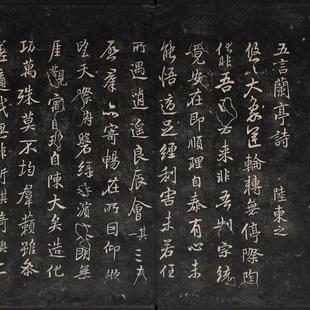 五言蘭亭詩 陸柬之
悠悠大象運輪轉無停際陶
化非吾因去來非吾制宗統
竟安在即順理自泰有心未
能悟適足纏利害未若任
所遇逍遙良辰會其一三春
羣品寄暢在所因仰
望天際俯磐綠水濱寥朗無
厓觀寓目理自陳大矣造化
功萬殊莫不均羣籟雖參
差適我無非新猗與二